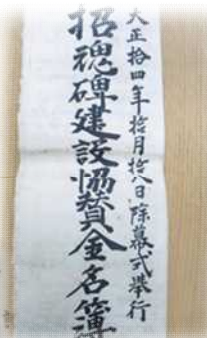 大正拾四年拾月拾八日除幕式挙行
招魂碑建設協賛金名簿